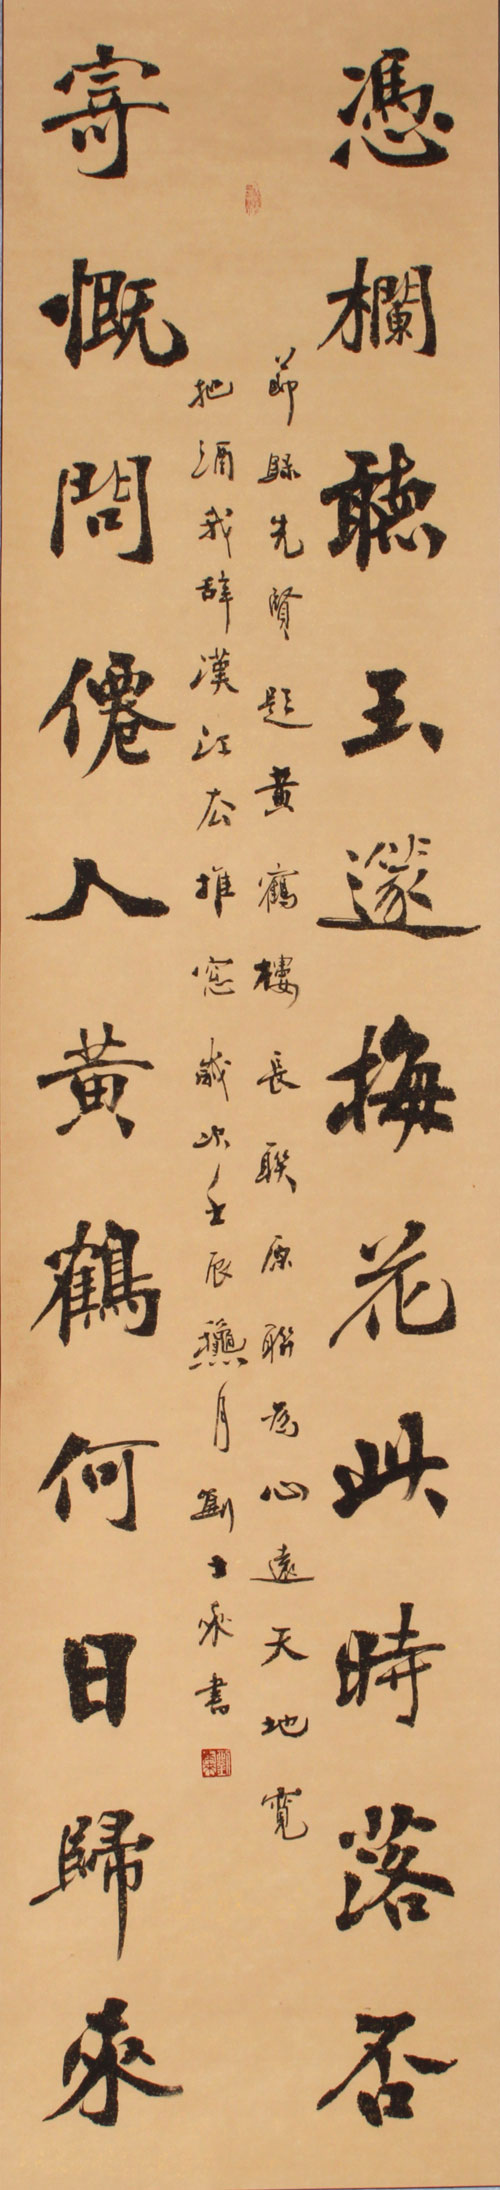 憑欄聽玉篴梅花此時落否
節録先賢題黄鶴樓長联原聯为心遠天地寬
把酒我辞漢江去推窓壬辰龝月劉士書
寄慨問僊人黄鶴何日歸來